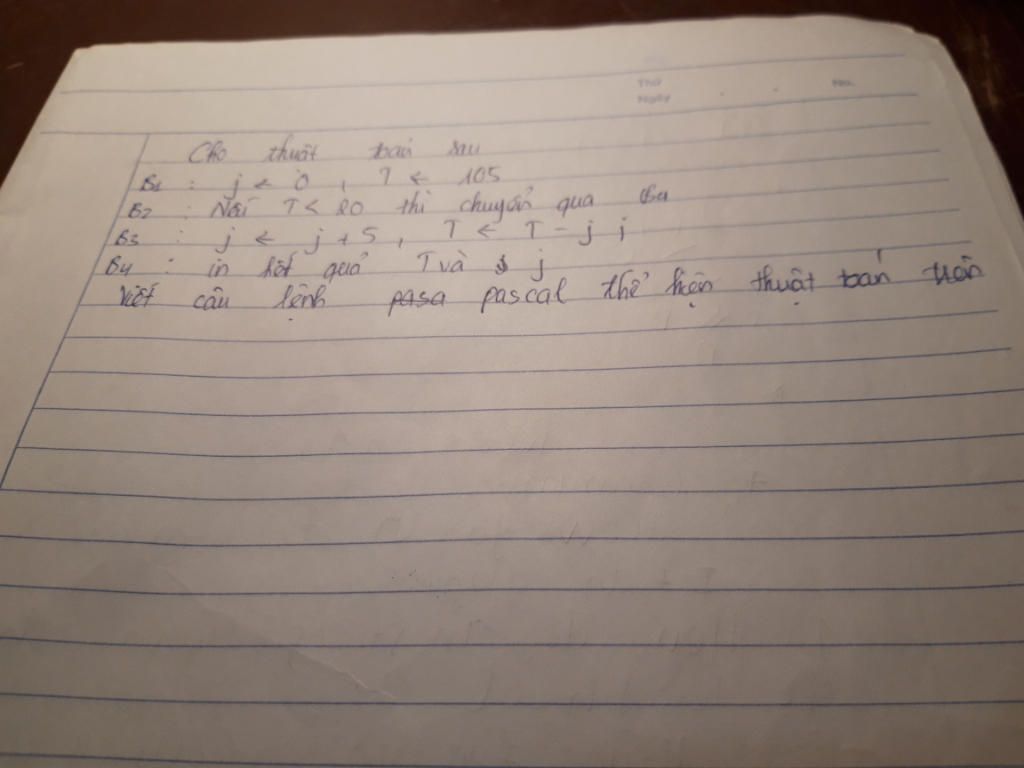 Thứ
Ngày
No.
Cho thuật toán sau
B1 : j ← 0 , T ← 105
B2 : Nếu T < 20 thì chuyển qua B4
B3 : j ← j + 5 , T ← T - j ;
B4 : in kết quả T và j
Viết câu lệnh pasa pascal thể hiện thuật toán trên